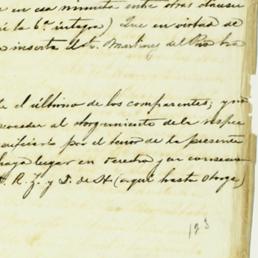 e en esa minuta entre otras clausu
la 6ª integra) Que en virtud de
inserta el Sr. Martinez del Rio ha
el último de los comparentes; y
proceder al otorgamiento de la respec
por el tenor de la presente
haya lugar en derecho y en consecuen
R. Z. y S. de H (aquí hasta Otorga)
193